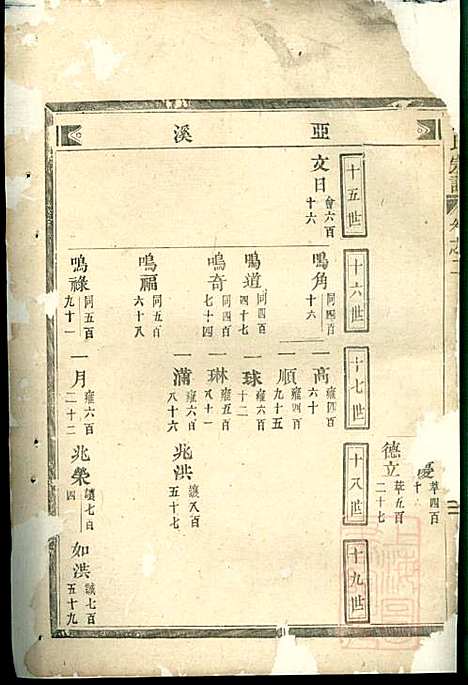 氏宗譜 卷之二
亞溪
十五世
十六世
十七世
十八世
十九世
慶 莘四百十
德立 莘五百二十七
文日 會六百十六
鳴角 同四百十六
一高 雍四百六十
一順 雍四百九十五
鳴道 同四百四十七
一球 雍六百十二
鳴奇 同四百七十四
一琳 雍五百八十一
鳴福 同五百六十八
一滿 雍六百八十六
兆洪 護八百五十七
鳴祿 同五百九十一
一月 雍六百二十二
兆榮 護七百四
如洪 誠七百五十九